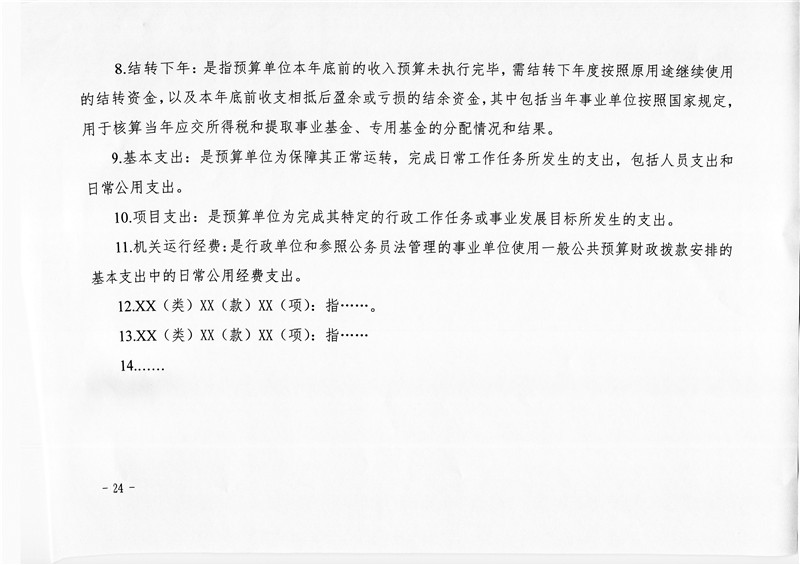 8.结转下年：是指预算单位本年底前的收入预算未执行完毕，需结转下年度按照原用途继续使用
的结转资金，以及本年底前收支相抵后盈余或亏损的结余资金，其中包括当年事业单位按照国家规定，
用于核算当年应交所得税和提取事业基金、专用基金的分配情况和结果。
9.基本支出：是预算单位为保障其正常运转，完成日常工作任务所发生的支出，包括人员支出和
日常公用支出。
10.项目支出：是预算单位为完成其特定的行政工作任务或事业发展目标所发生的支出。
11.机关运行经费：是行政单位和参照公务员法管理的事业单位使用一般公共预算财政拨款安排的
基本支出中的日常公用经费支出。
12.XX（类）XX（款）XX（项）：指……。
13.XX（类）XX（款）XX（项）：指……
14.……
- 24 -